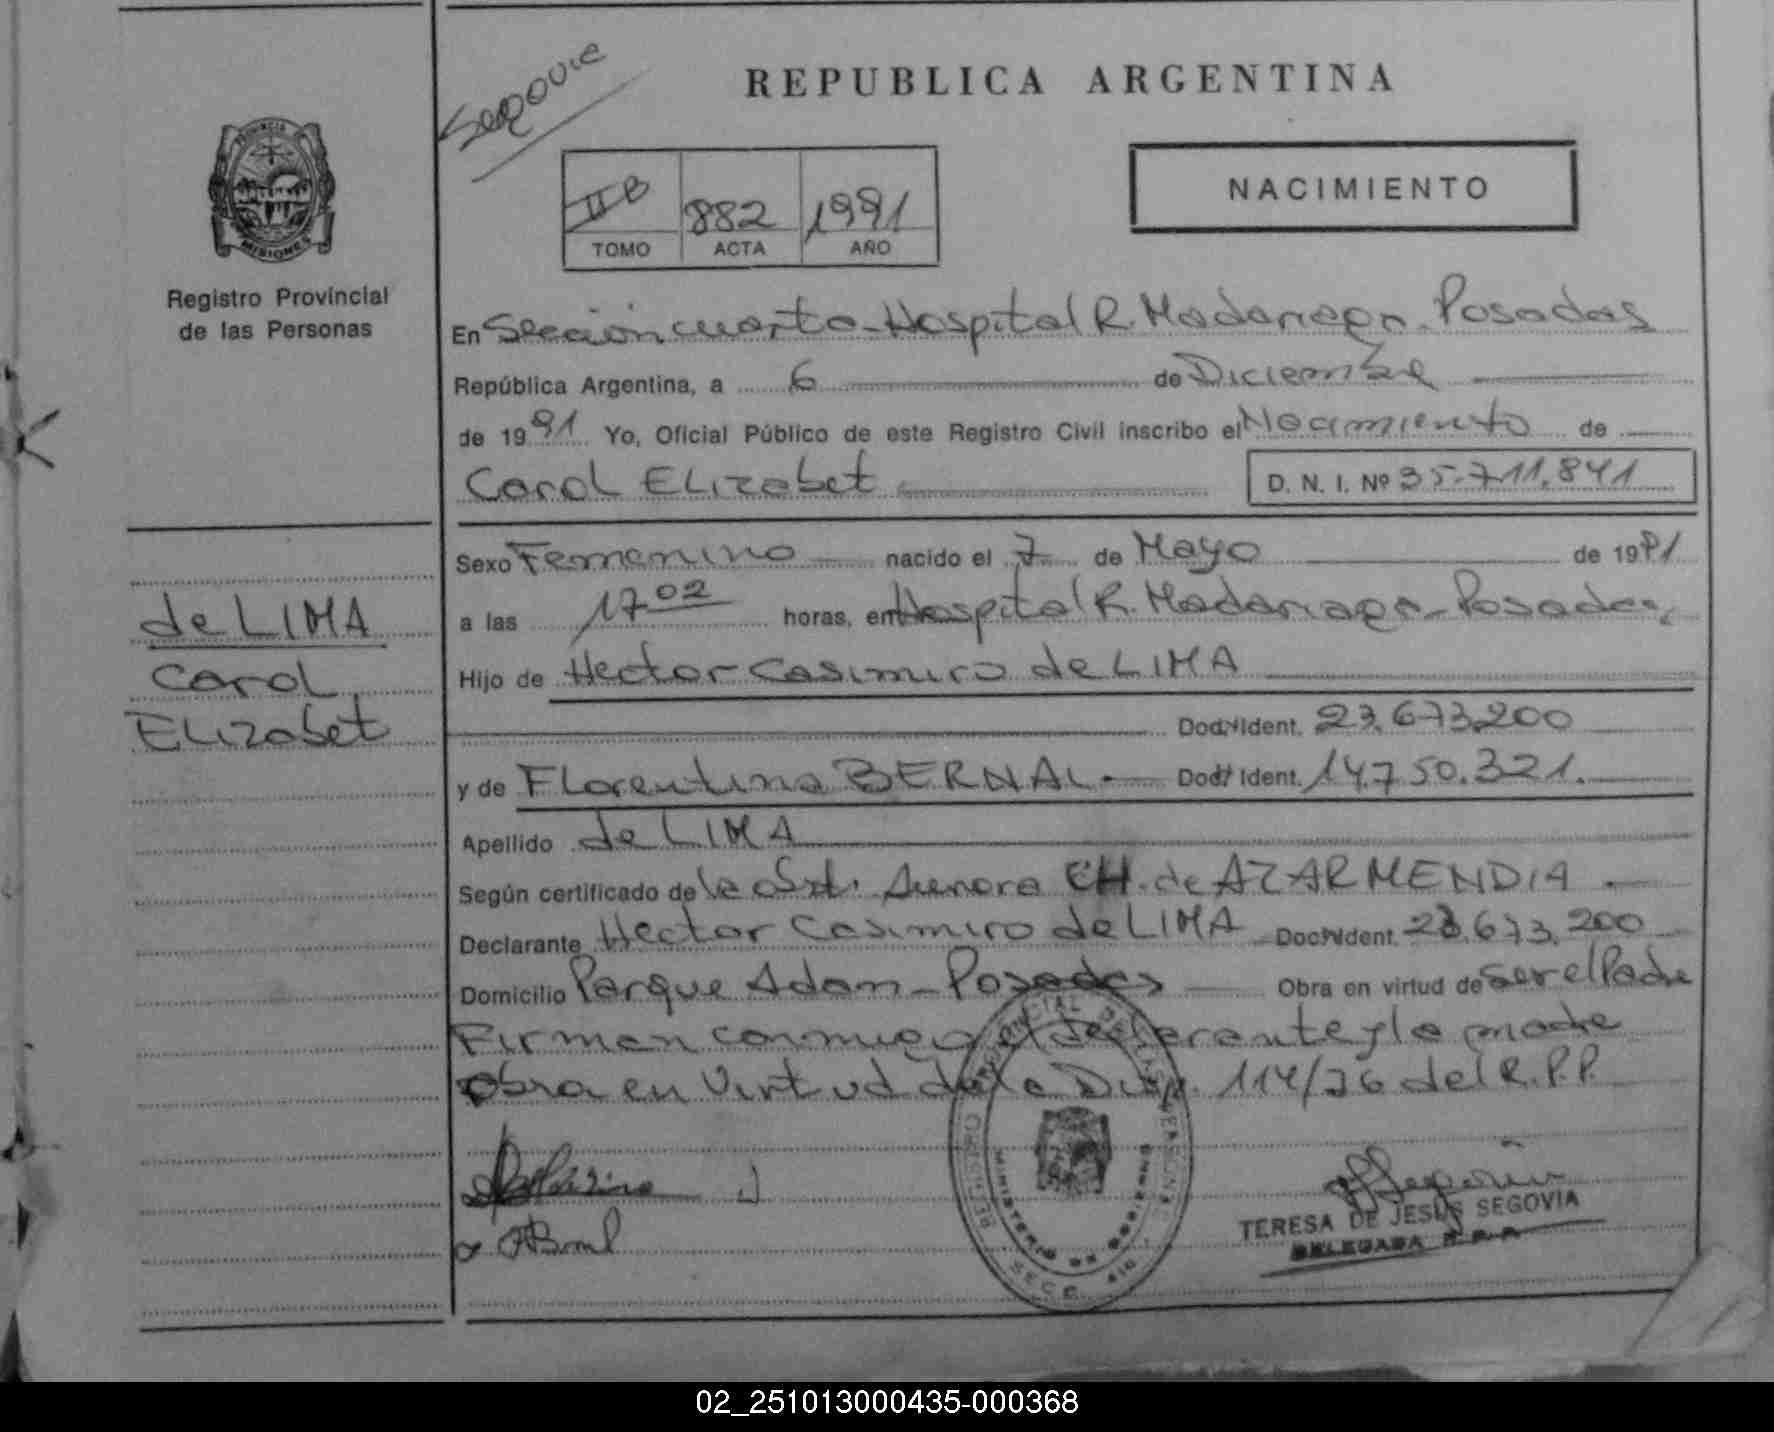 Segovia
REPUBLICA ARGENTINA
II B 882 1991
TOMO ACTA AÑO
NACIMIENTO
PROVINCIA DE
MISIONES
Registro Provincial
de las Personas
En Sección cuarta - Hospital R. Madariaga - Posadas
República Argentina, a 6 de Diciembre
de 1991 Yo, Oficial Público de este Registro Civil inscribo el Nacimiento de
Carol ELizabet D. N. I. Nº 35.711.841
Sexo Femenino nacido el 7 de Mayo de 1991
a las 17 02 horas, en Hospital R. Madariaga - Posadas
Hijo de Hector Casimiro de LIMA
Doc. Ident. 23.673.200
y de Florentina BERNAL.- Doc. Ident. 14.750.321.
Apellido de LIMA
Según certificado de la obst. Aurora CH. de AZARMENDIA
Declarante Hector Casimiro de LIMA Doc. Ident. 23.673.200
Domicilio Parque Adam - Posadas Obra en virtud de ser el Padre
Firman conmigo el declarante y la madre
Obra en Virtud de la Disp. 114/76 del R.P.P.
de LIMA
Carol
ELizabet
REGISTRO PROVINCIAL DE LAS PERSONAS
MINISTERIO DE GOBIERNO
TERESA DE JESUS SEGOVIA
DELEGADA R.P.P.
02_251013000435-000368